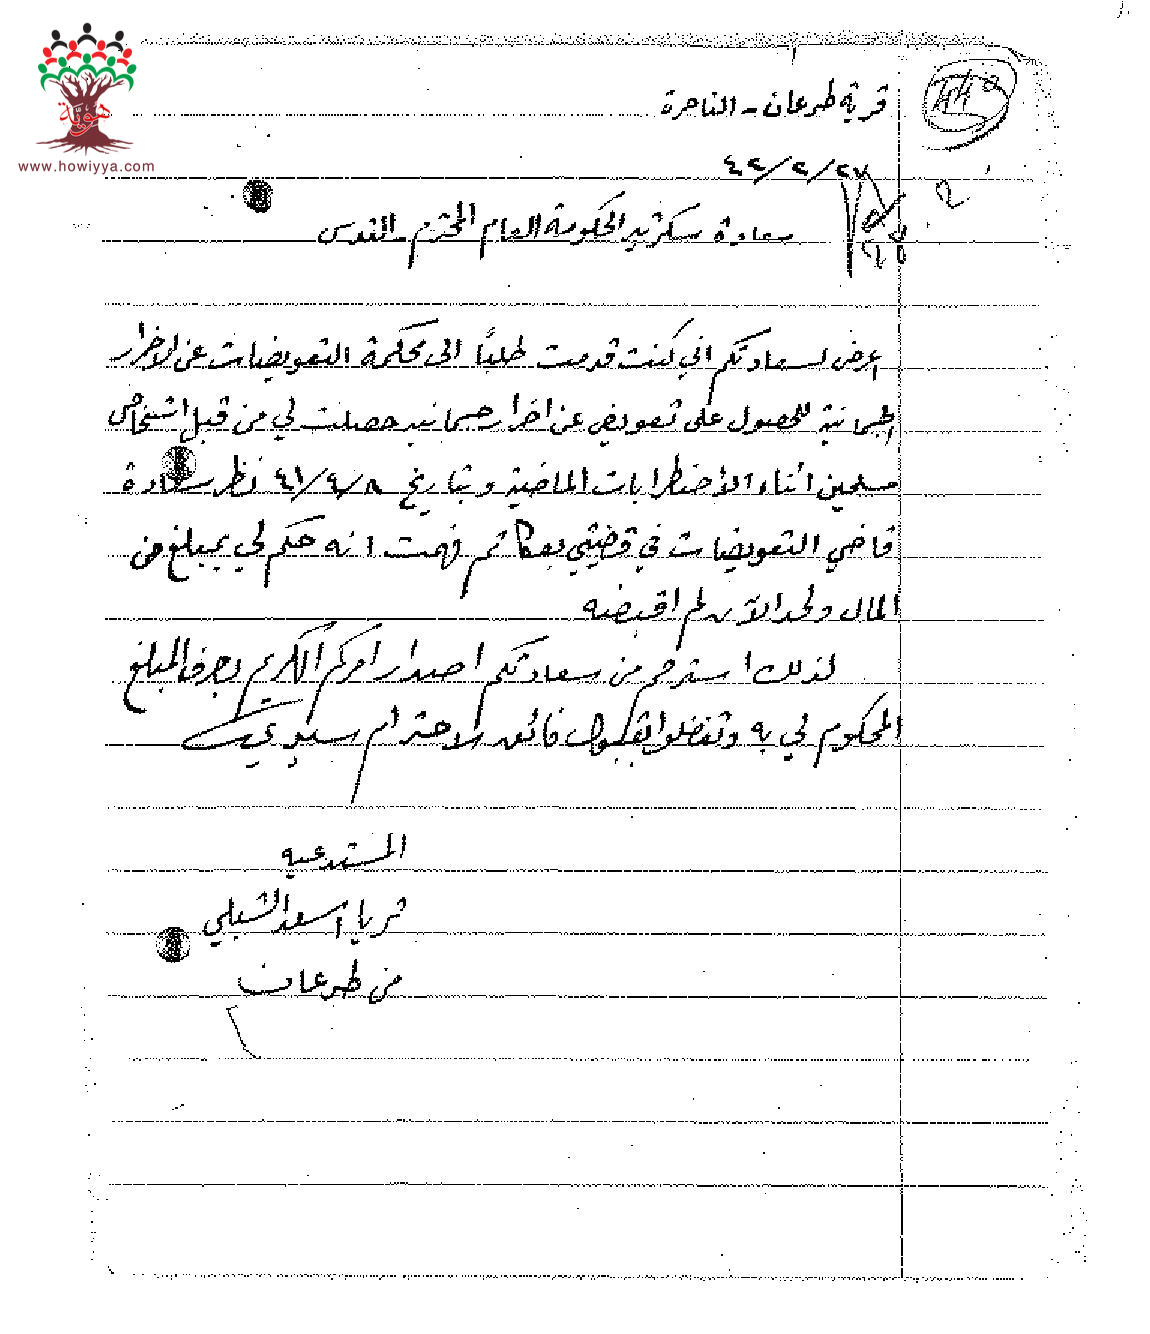 هوية
www.howiyya.com
قرية طرعان - الناصرة
٢٧/٢/٤٢
سعادة سكرتير الحكومة العام المحترم - القدس
اعرض لسعادتكم اني كنت قدمت طلباً الى محكمة التعويضات عن الاضرار
الجسمانية للحصول على تعويض عن اضرار جسمانيه حصلت لي من قبل اشخاص
مسلحين اثناء الأضطرابات الماضية وبتاريخ ٨/٩/٤١ نظر سعادة
قاضي التعويضات في قضيتي بعكا ثم فهمت انه حكم لي بمبلغ من
المال ولحد الآن لم اقبضه
لذلك استرحم من سعادتكم اصدار امركم الكريم بصرف المبلغ
المحكوم لي به وتفضلوا بقبول فائق الاحترام سيدي
المستدعيه
ثريا اسعد الشبلي
من طرعان